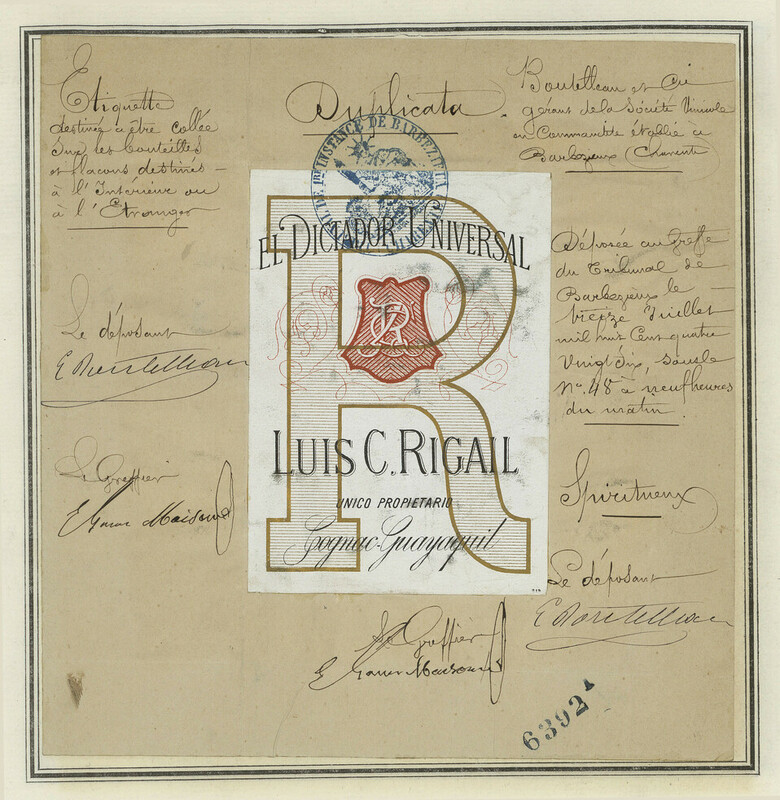 Etiquette
destinée à être collée
sur les bouteilles
et flacons destinés
à l'Intérieur ou
à l'Etranger
Duplicata
Boutelleau et Cie
gérant de la Société Vinicole
en Commandite établie à
Barbezieux (Charente
INSTANCE DE BARBEZIEUX
EL DICTADOR UNIVERSAL
R
LUIS C. RIGAIL
UNICO PROPIETARIO
Cognac-Guayaquil
Déposée au Greffe
du Tribunal de
Barbezieux le
treize Juillet
mil huit Cent quatre
Vingt Six, sous le
No. 48 à neuf heures
du matin.
Le déposant
E Boutelleau
Le Greffier
Spiritueux
Le déposant
E Boutelleau
Le Greffier
6392